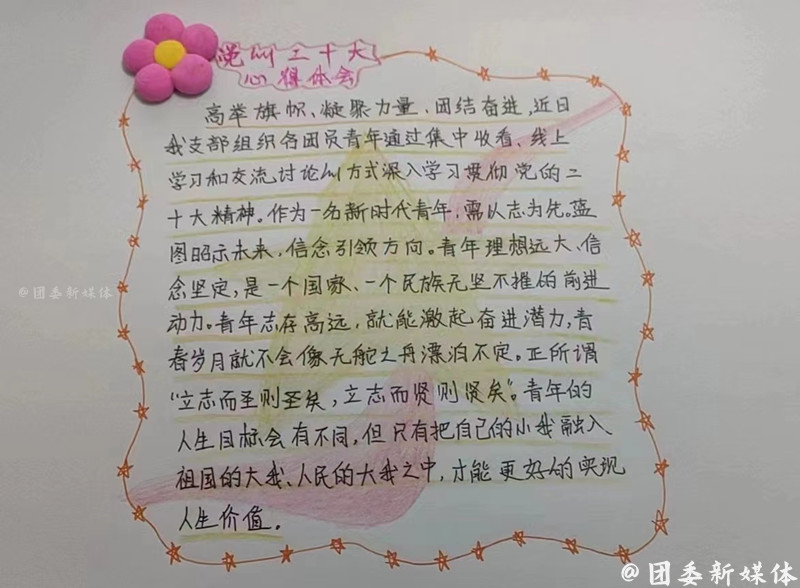 党的二十大
心得体会
高举旗帜、凝聚力量、团结奋进,近日
我支部组织各团员青年通过集中收看、线上
学习和交流讨论的方式深入学习贯彻党的二
十大精神。作为一名新时代青年,需以志为先。蓝
图昭示未来,信念引领方向。青年理想远大、信
念坚定,是一个国家、一个民族无坚不摧的前进
动力。青年志存高远,就能激起奋进潜力,青
春岁月就不会像无舵之舟漂泊不定。正所谓
“立志而圣则圣矣,立志而贤则贤矣”。青年的
人生目标会有不同,但只有把自己的小我融入
祖国的大我、人民的大我之中,才能更好的实现
人生价值。
@团委新媒体
@团委新媒体